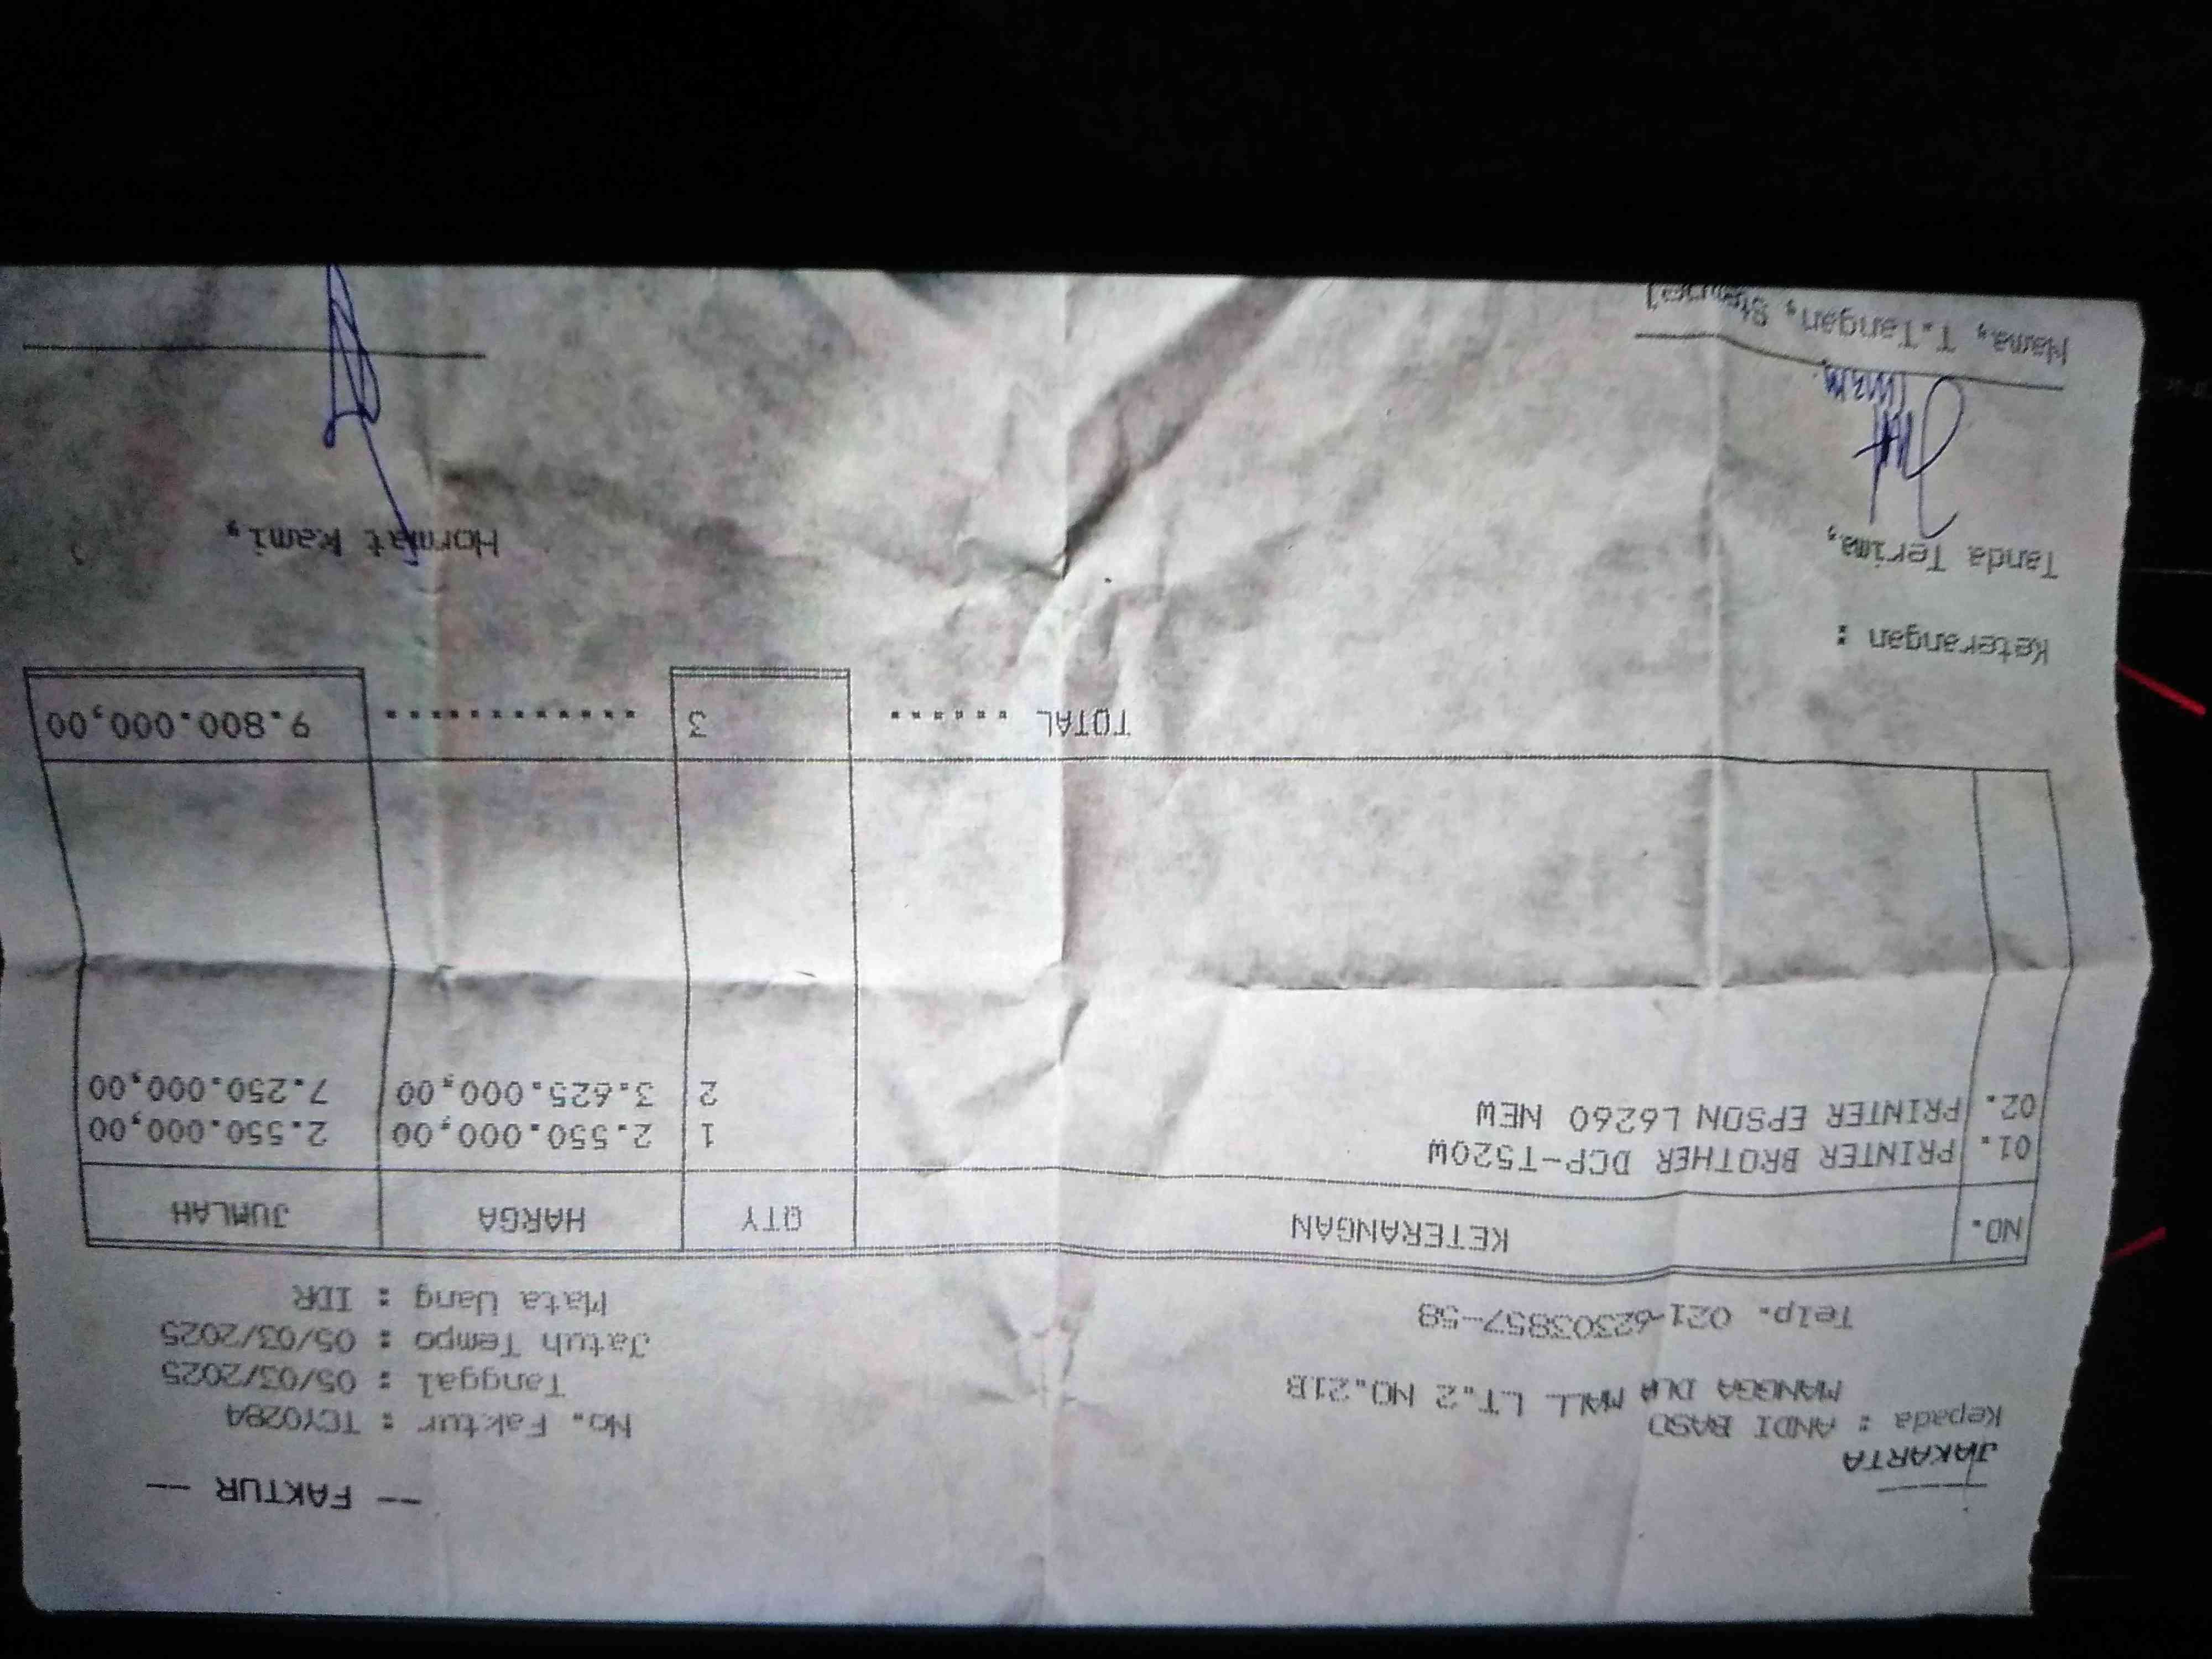 -- FAKTUR --
JAKARTA
Kepada : ANDI BASO
MANGGA DUA MALL LT.2 NO.21B
Telp. 021-62303857-58
No. Faktur : TCY028A
Tanggal : 05/03/2025
Jatuh Tempo : 05/03/2025
Mata Uang : IDR
NO. KETERANGAN QTY HARGA JUMLAH
01. PRINTER BROTHER DCP-T520W 1 2.550.000,00 2.550.000,00
02. PRINTER EPSON L6260 NEW 2 3.625.000,00 7.250.000,00
TOTAL ...... 3 ............ 9.800.000,00
Keterangan :
Tanda Terima, Hormat Kami,
Nama, T.Tangan, Stempel